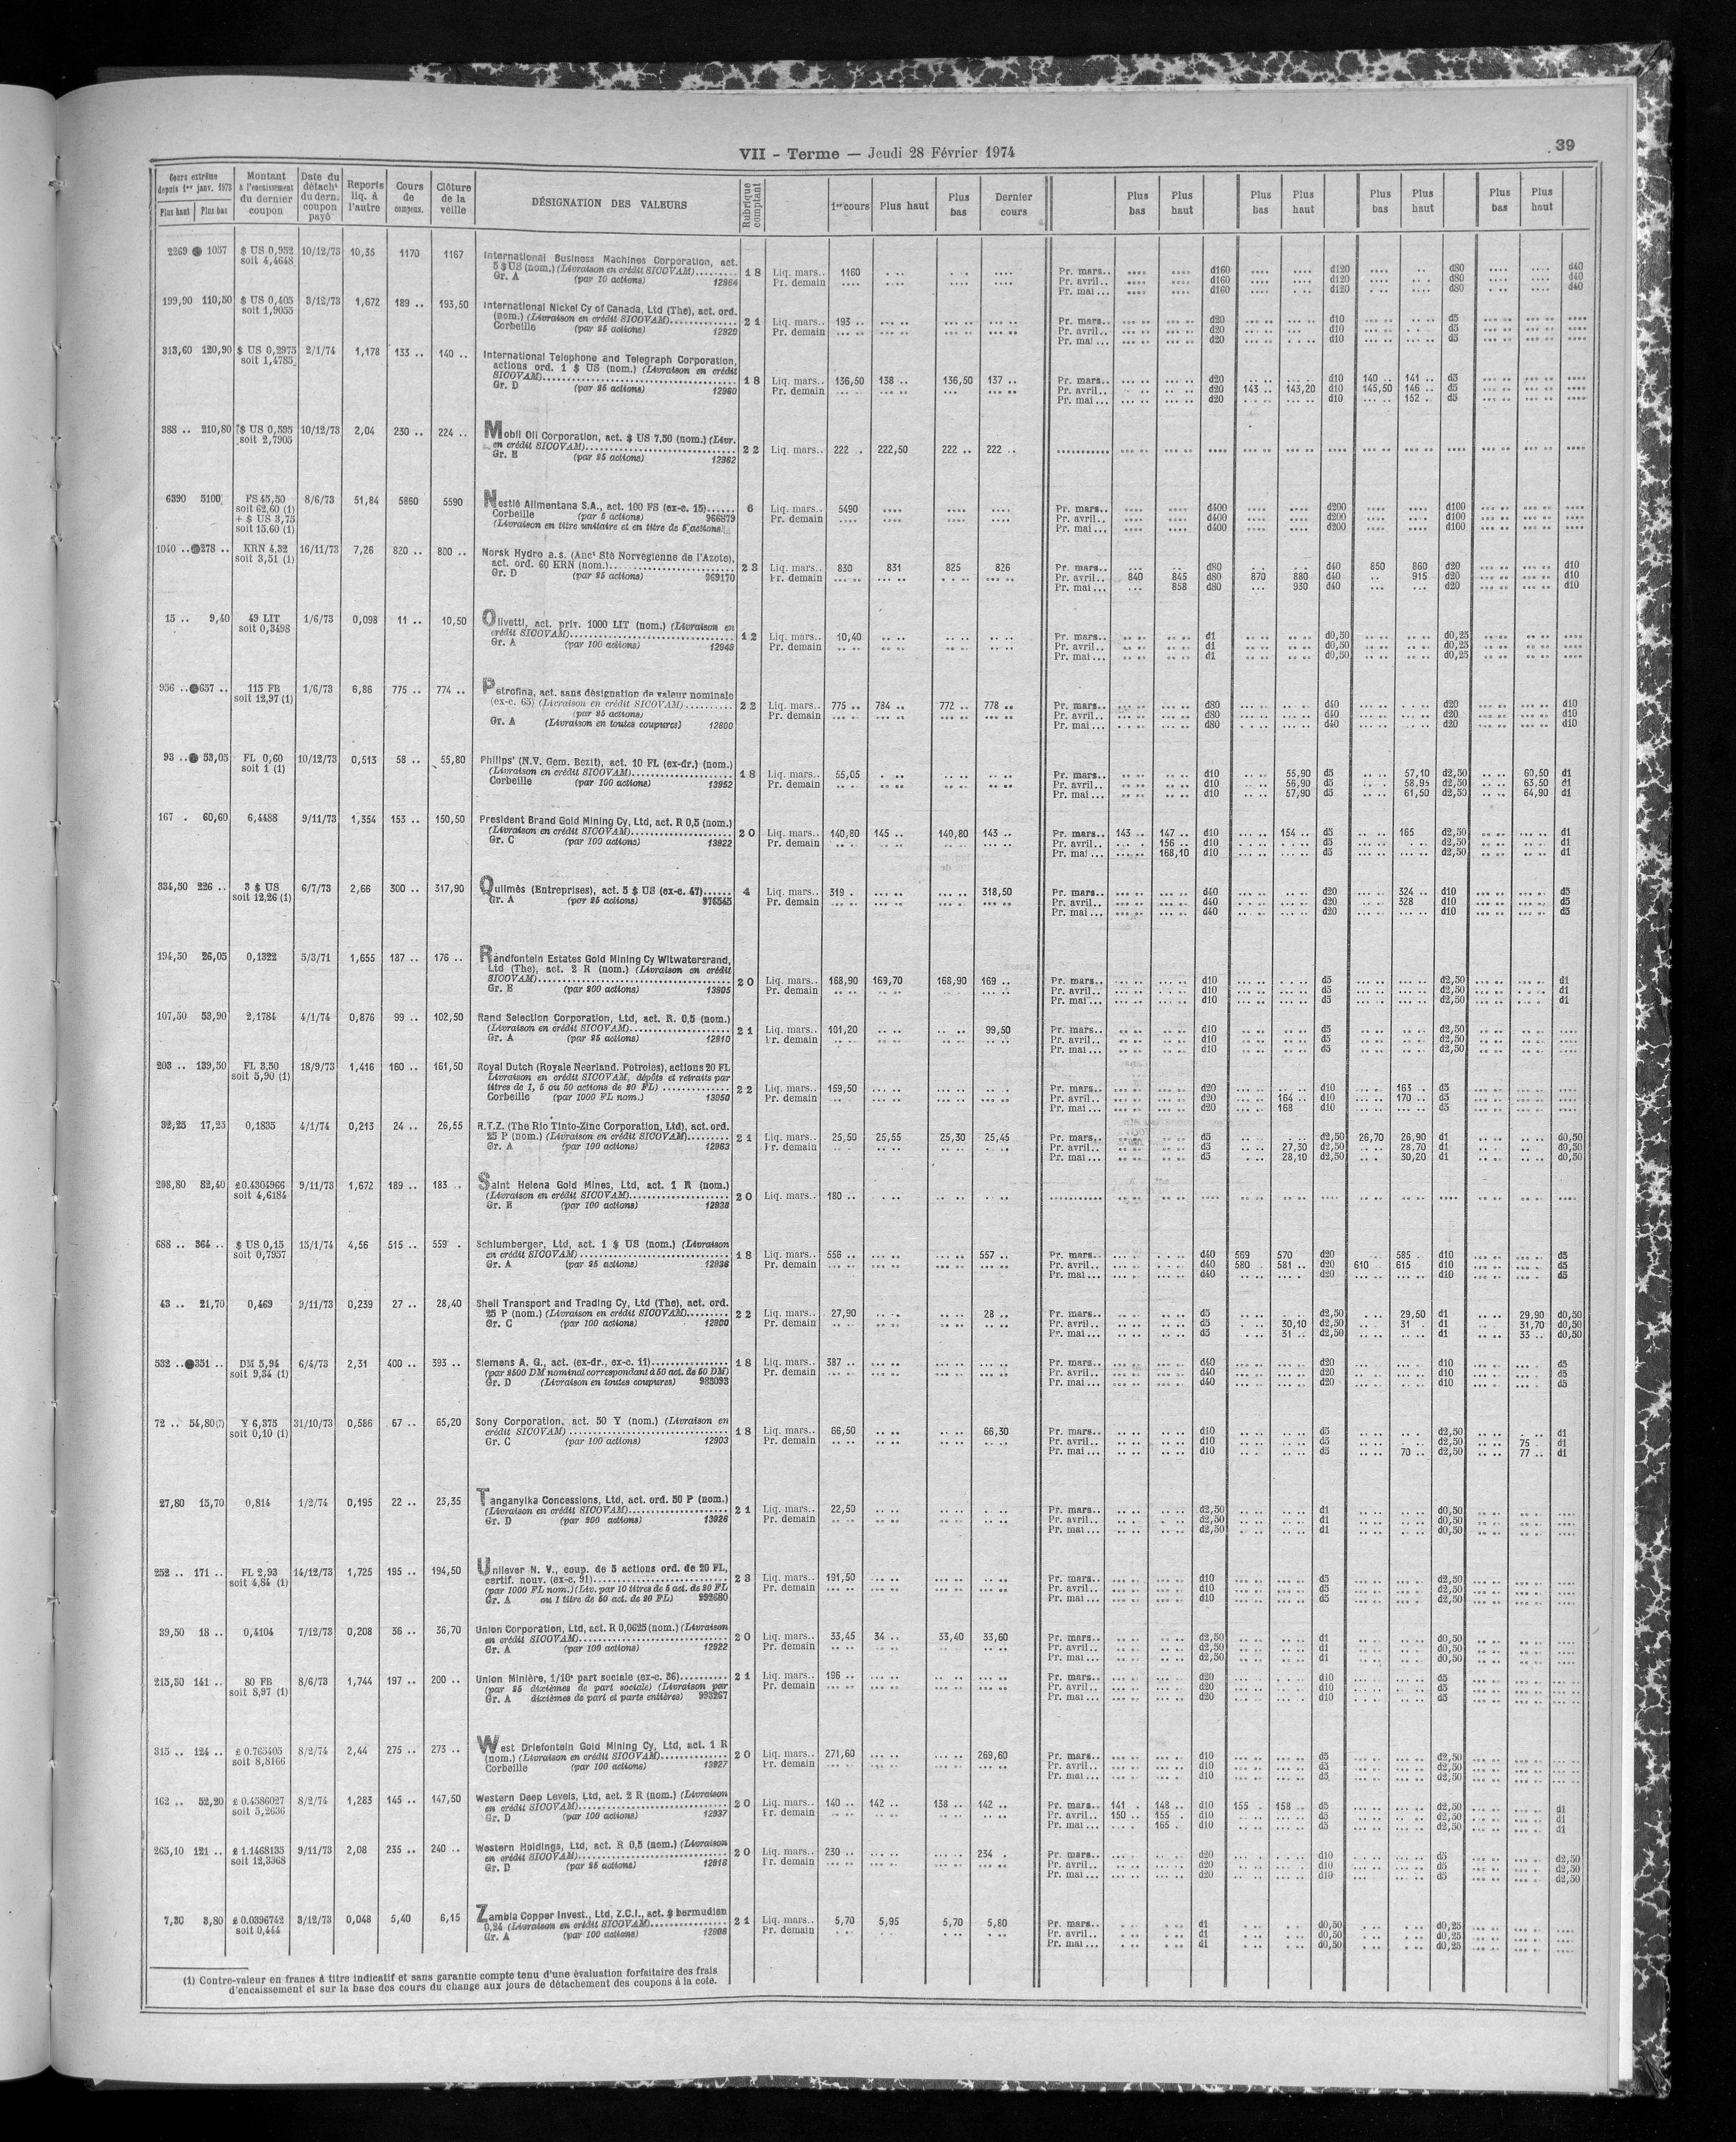 VII - Terme — Jeudi 28 Février 1974
39
Cours extrême depuis 1er janv. 1973 Plus haut Plus bas
Montant à l'encaissement du dernier coupon
Date du détacht du dern. coupon payé
Reports liq. à l'autre
Cours de compens.
Clôture de la veille
DÉSIGNATION DES VALEURS
Rubrique comptant
1er cours Plus haut Plus bas Dernier cours
Plus bas Plus haut Plus bas Plus haut Plus bas Plus haut Plus bas Plus haut
2269 1057 $ US 0,952 10/12/73 10,35 1170 1167
soit 4,4648
International Business Machines Corporation, act.
5 $ US (nom.) (Livraison en crédit SICOVAM)
Gr. A (par 10 actions) 12964
18 Liq. mars.. 1160
Pr. demain
Pr. mars.. d160 d120 d80 d40
Pr. avril.. d160 d120 d80 d40
Pr. mai... d160 d120 d80 d40
199,90 110,50 $ US 0,405 3/12/73 1,672 189 .. 193,50
soit 1,9055
International Nickel Cy of Canada, Ltd (The), act. ord.
(nom.) (Livraison en crédit SICOVAM)
Corbeille (par 25 actions) 12929
21 Liq. mars.. 193 ..
Pr. demain
Pr. mars.. d20 d10 d5
Pr. avril.. d20 d10 d5
Pr. mai... d20 d10 d5
313,60 120,90 $ US 0,2975 2/1/74 1,178 133 .. 140 ..
soit 1,4785
International Telephone and Telegraph Corporation,
actions ord. 1 $ US (nom.) (Livraison en crédit
SICOVAM)
Gr. D (par 25 actions) 12960
18 Liq. mars.. 136,50 138 .. 136,50 137 ..
Pr. demain
Pr. mars.. d20 d10 140 .. 141 .. d5
Pr. avril.. d20 143 .. 143,20 d10 145,50 146 .. d5
Pr. mai... d20 d10 152 .. d5
388 .. 210,80 $ US 0,595 10/12/73 2,04 230 .. 224 ..
soit 2,7905
Mobil Oil Corporation, act. $ US 7,50 (nom.) (Livr.
en crédit SICOVAM)
Gr. E (par 25 actions) 12962
22 Liq. mars.. 222 .. 222,50 222 .. 222 ..
6390 5100 FS 45,50 8/6/73 51,84 5860 5590
soit 62,60 (1)
+ $ US 3,75
soit 15,60 (1)
Nestlé Alimentana S.A., act. 100 FS (ex-c. 15)
Corbeille (par 5 actions) 966879
(Livraison en titre unitaire et en titre de 5 actions)
6 Liq. mars.. 5490
Pr. demain
Pr. mars.. d400 d200 d100
Pr. avril.. d400 d200 d100
Pr. mai... d400 d200 d100
1040 .. 278 .. KRN 4.32 16/11/73 7,26 820 .. 800 ..
soit 3,51 (1)
Norsk Hydro a.s. (Anct Sté Norvégienne de l'Azote),
act. ord. 60 KRN (nom.)
Gr. D (par 25 actions) 969170
23 Liq. mars.. 830 831 825 826
Pr. demain
Pr. mars.. d80 d40 850 860 d20 d10
Pr. avril.. 840 845 d80 870 880 d40 915 d20 d10
Pr. mai... 858 d80 930 d40 d20 d10
15 .. 9,40 49 LIT 1/6/73 0,098 11 .. 10,50
soit 0,3498
Olivetti, act. priv. 1000 LIT (nom.) (Livraison en
crédit SICOVAM)
Gr. A (par 100 actions) 12949
12 Liq. mars.. 10,40
Pr. demain
Pr. mars.. d1 d0,50 d0,25
Pr. avril.. d1 d0,50 d0,25
Pr. mai... d1 d0,50 d0,25
956 .. 657 .. 115 FB 1/6/73 6,86 775 .. 774 ..
soit 12,97 (1)
Petrofina, act. sans désignation de valeur nominale
(ex-c. 65) (Livraison en crédit SICOVAM)
(par 25 actions)
Gr. A (Livraison en toutes coupures) 12800
22 Liq. mars.. 775 .. 784 .. 772 .. 778 ..
Pr. demain
Pr. mars.. d80 d40 d20 d10
Pr. avril.. d80 d40 d20 d10
Pr. mai... d80 d40 d20 d10
93 .. 53,05 FL 0,60 10/12/73 0,513 58 .. 55,80
soit 1 (1)
Philips' (N.V. Gem. Bezit), act. 10 FL (ex-dr.) (nom.)
(Livraison en crédit SICOVAM)
Corbeille (par 100 actions) 13952
18 Liq. mars.. 55,05
Pr. demain
Pr. mars.. d10 55,90 d5 57,10 d2,50 60,50 d1
Pr. avril.. d10 56,90 d5 58,95 d2,50 63,50 d1
Pr. mai... d10 57,90 d5 61,50 d2,50 64,90 d1
167 . 60,60 6,4488 9/11/73 1,354 153 .. 150,50
President Brand Gold Mining Cy, Ltd, act. R 0,5 (nom.)
(Livraison en crédit SICOVAM)
Gr. C (par 100 actions) 13922
20 Liq. mars.. 140,80 145 .. 140,80 143 ..
Pr. demain
Pr. mars.. 143 .. 147 .. d10 154 .. d5 165 d2,50 d1
Pr. avril.. 156 .. d10 d5 d2,50 d1
Pr. mai... 168,10 d10 d5 d2,50 d1
334,50 226 .. 3 $ US 6/7/73 2,66 300 .. 317,90
soit 12,26 (1)
Quilmès (Entreprises), act. 5 $ US (ex-c. 47)
Gr. A (par 25 actions) 976545
4 Liq. mars.. 319 . 318,50
Pr. demain
Pr. mars.. d40 d20 324 .. d10 d5
Pr. avril.. d40 d20 328 d10 d5
Pr. mai... d40 d20 d10 d5
194,50 26,05 0,1322 5/3/71 1,655 187 .. 176 ..
Randfontein Estates Gold Mining Cy Witwatersrand,
Ltd (The), act. 2 R (nom.) (Livraison en crédit
SICOVAM)
Gr. E (par 200 actions) 13905
20 Liq. mars.. 168,90 169,70 168,90 169 ..
Pr. demain
Pr. mars.. d10 d5 d2,50 d1
Pr. avril.. d10 d5 d2,50 d1
Pr. mai... d10 d5 d2,50 d1
107,50 53,90 2,1784 4/1/74 0,876 99 .. 102,50
Rand Selection Corporation, Ltd, act. R. 0,5 (nom.)
(Livraison en crédit SICOVAM)
Gr. A (par 25 actions) 12910
21 Liq. mars.. 101,20 99,50
Pr. demain
Pr. mars.. d10 d5 d2,50
Pr. avril.. d10 d5 d2,50
Pr. mai... d10 d5 d2,50
203 .. 139,50 FL 3,50 18/9/73 1,416 160 .. 161,50
soit 5,90 (1)
Royal Dutch (Royale Neerland. Petroles), actions 20 FL
Livraison en crédit SICOVAM, dépôts et retraits par
titres de 1, 5 ou 50 actions de 20 FL)
Corbeille (par 1000 FL nom.) 13950
22 Liq. mars.. 159,50
Pr. demain
Pr. mars.. d20 d10 163 .. d5
Pr. avril.. d20 164 .. d10 170 .. d5
Pr. mai... d20 168 d10 d5
32,25 17,25 0,1835 4/1/74 0,213 24 .. 26,55
R.T.Z. (The Rio Tinto-Zinc Corporation, Ltd), act. ord.
25 P (nom.) (Livraison en crédit SICOVAM)
Gr. A (par 100 actions) 12963
21 Liq. mars.. 25,50 25,55 25,30 25,45
Pr. demain
Pr. mars.. d5 d2,50 26,70 26,90 d1 d0,50
Pr. avril.. d5 27,30 d2,50 28,70 d1 d0,50
Pr. mai... d5 28,10 d2,50 30,20 d1 d0,50
208,80 82,40 £0.4304966 9/11/73 1,672 189 .. 183 ..
soit 4,6184
Saint Helena Gold Mines, Ltd, act. 1 R (nom.)
(Livraison en crédit SICOVAM)
Gr. E (par 100 actions) 12938
20 Liq. mars.. 180 ..
688 .. 364 .. $ US 0,15 15/1/74 4,56 515 .. 559 .
soit 0,7957
Schlumberger, Ltd, act. 1 $ US (nom.) (Livraison
en crédit SICOVAM)
Gr. A (par 25 actions) 12936
18 Liq. mars.. 556 .. 557 ..
Pr. demain
Pr. mars.. d40 569 570 d20 585 . d10 d5
Pr. avril.. d40 580 . 581 .. d20 610 615 d10 d5
Pr. mai... d40 d20 d10 d5
43 .. 21,70 0,469 9/11/73 0,239 27 .. 28,40
Shell Transport and Trading Cy, Ltd (The), act. ord.
25 P (nom.) (Livraison en crédit SICOVAM)
Gr. C (par 100 actions) 12900
22 Liq. mars.. 27,90 28 ..
Pr. demain
Pr. mars.. d5 d2,50 29,50 d1 29,90 d0,50
Pr. avril.. d5 30,10 d2,50 31 . d1 31,70 d0,50
Pr. mai... d5 31 .. d2,50 d1 33 .. d0,50
532 .. 351 .. DM 5,94 6/4/73 2,31 400 .. 393 ..
soit 9,34 (1)
Siemens A. G., act. (ex-dr., ex-c. 11)
(par 2500 DM nominal correspondant à 50 act. de 50 DM)
Gr. D (Livraison en toutes coupures) 983093
18 Liq. mars.. 387 ..
Pr. demain
Pr. mars.. d40 d20 d10 d5
Pr. avril.. d40 d20 d10 d5
Pr. mai... d40 d20 d10 d5
72 .. 54,80(7) Y 6,375 31/10/73 0,586 67 .. 65,20
soit 0,10 (1)
Sony Corporation, act. 50 Y (nom.) (Livraison en
crédit SICOVAM)
Gr. C (par 100 actions) 12903
18 Liq. mars.. 66,50 66,30
Pr. demain
Pr. mars.. d10 d5 d2,50 d1
Pr. avril.. d10 d5 d2,50 75 . d1
Pr. mai... d10 d5 70 .. d2,50 77 .. d1
27,80 15,70 0,814 1/2/74 0,195 22 .. 23,35
Tanganyika Concessions, Ltd, act. ord. 50 P (nom.)
(Livraison en crédit SICOVAM)
Gr. D (par 200 actions) 13926
21 Liq. mars.. 22,50
Pr. demain
Pr. mars.. d2,50 d1 d0,50
Pr. avril.. d2,50 d1 d0,50
Pr. mai... d2,50 d1 d0,50
252 .. 171 .. FL 2,93 14/12/73 1,725 195 .. 194,50
soit 4,84 (1)
Unilever N. V., coup. de 5 actions ord. de 20 FL,
certif. nouv. (ex-c. 91)
(par 1000 FL nom.) (Liv. par 10 titres de 5 act. de 20 FL
Gr. A ou 1 titre de 50 act. de 20 FL) 992680
23 Liq. mars.. 191,50
Pr. demain
Pr. mars.. d10 d5 d2,50
Pr. avril.. d10 d5 d2,50
Pr. mai... d10 d5 d2,50
39,50 18 .. 0,4104 7/12/73 0,208 36 .. 36,70
Union Corporation, Ltd, act. R 0,0625 (nom.) (Livraison
en crédit SICOVAM)
Gr. A (par 100 actions) 12922
20 Liq. mars.. 33,45 34 .. 33,40 33,60
Pr. demain
Pr. mars.. d2,50 d1 d0,50
Pr. avril.. d2,50 d1 d0,50
Pr. mai... d2,50 d1 d0,50
215,30 141 .. 80 FB 8/6/73 1,744 197 .. 200 ..
soit 8,97 (1)
Union Minière, 1/10e part sociale (ex-c. 36)
(par 25 dixièmes de part sociale) (Livraison par
Gr. A dixièmes de part et parts entières) 993267
21 Liq. mars.. 196 ..
Pr. demain
Pr. mars.. d20 d10 d5
Pr. avril.. d20 d10 d5
Pr. mai... d20 d10 d5
315 .. 124 .. £ 0.763405 8/2/74 2,44 275 .. 273 ..
soit 8,8166
West Driefontein Gold Mining Cy, Ltd, act. 1 R
(nom.) (Livraison en crédit SICOVAM)
Corbeille (par 100 actions) 13927
20 Liq. mars.. 271,60 269,60
Pr. demain
Pr. mars.. d10 d5 d2,50
Pr. avril.. d10 d5 d2,50
Pr. mai... d10 d5 d2,50
162 .. 52,20 £ 0.4586027 8/2/74 1,283 145 .. 147,50
soit 5,2636
Western Deep Levels, Ltd, act. 2 R (nom.) (Livraison
en crédit SICOVAM)
Gr. D (par 100 actions) 12937
20 Liq. mars.. 140 .. 142 .. 138 .. 142 ..
Pr. demain
Pr. mars.. 141 . 148 .. d10 155 . 158 .. d5 d2,50 d1
Pr. avril.. 150 .. 155 . d10 d5 d2,50 d1
Pr. mai... 165 . d10 d5 d2,50 d1
265,10 121 .. £ 1.1468135 9/11/73 2,08 235 .. 240 ..
soit 12,3368
Western Holdings, Ltd, act. R 0,5 (nom.) (Livraison
en crédit SICOVAM)
Gr. D (par 25 actions) 12918
20 Liq. mars.. 230 .. 234 .
Pr. demain
Pr. mars.. d20 d10 d5 d2,50
Pr. avril.. d20 d10 d5 d2,50
Pr. mai... d20 d10 d5 d2,50
7,30 3,80 £ 0.0396742 3/12/73 0,048 5,40 6,15
soit 0,444
Zambia Copper Invest., Ltd, Z.C.I., act. $ bermudien
0,24 (Livraison en crédit SICOVAM)
Gr. A (par 100 actions) 12908
21 Liq. mars.. 5,70 5,95 5,70 5,80
Pr. demain
Pr. mars.. d1 d0,50 d0,25
Pr. avril.. d1 d0,50 d0,25
Pr. mai... d1 d0,50 d0,25
(1) Contre-valeur en francs à titre indicatif et sans garantie compte tenu d'une évaluation forfaitaire des frais
d'encaissement et sur la base des cours du change aux jours de détachement des coupons à la cote.